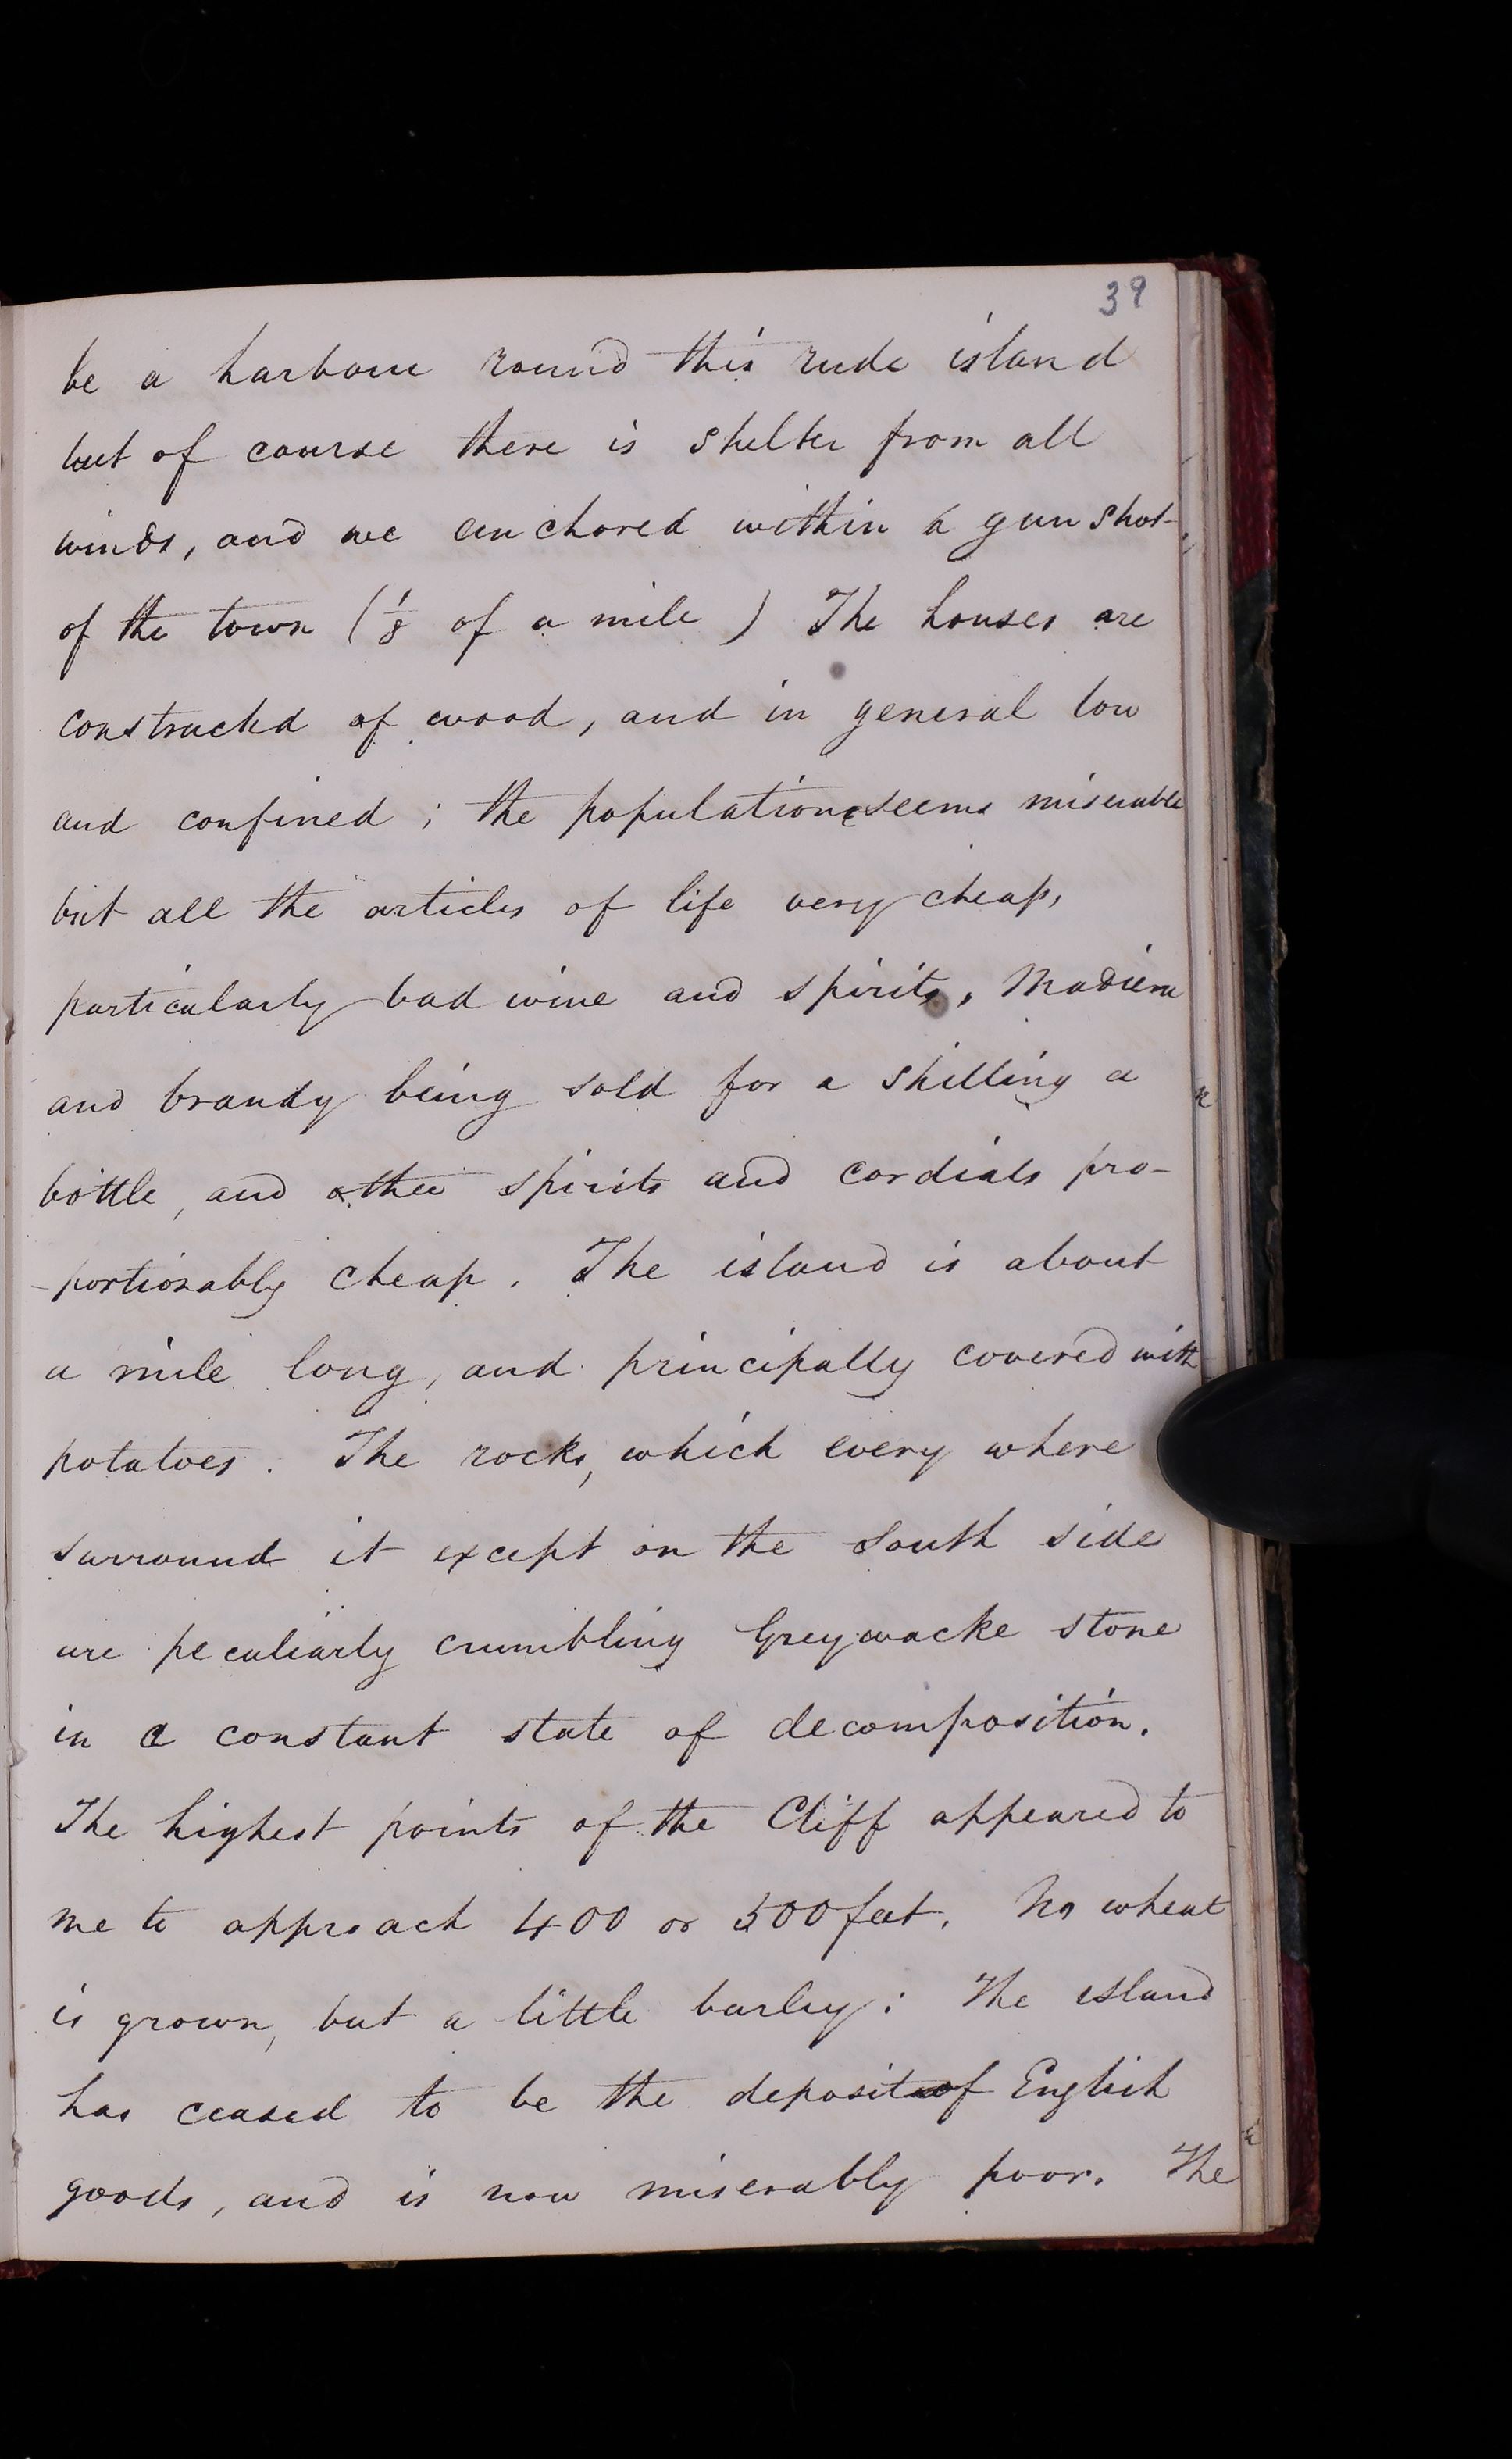 39
be a harbour round this rude island
but of course there is shelter from all
winds, and we anchored within a gun shot
of the town (1/8 of a mile) The houses are
constructed of wood, and in general low
and confined; the population seems miserable
but all the articles of life very cheap,
particularly bad wine and spirits, Madiera
and brandy being sold for a shilling a
bottle, and other spirits and cordials pro-
-portionably cheap. The island is about
a mile long, and principally covered with
potatoes. The rocks, which every where
surround it except on the South side
are peculiarly crumbling Greywacke stone
in a constant state of decomposition.
The highest points of the Cliff appeared to
me to approach 400 or 500 feet. No wheat
is grown, but a little barley: The island
has ceased to be the deposit of English
goods, and is now miserably poor. The